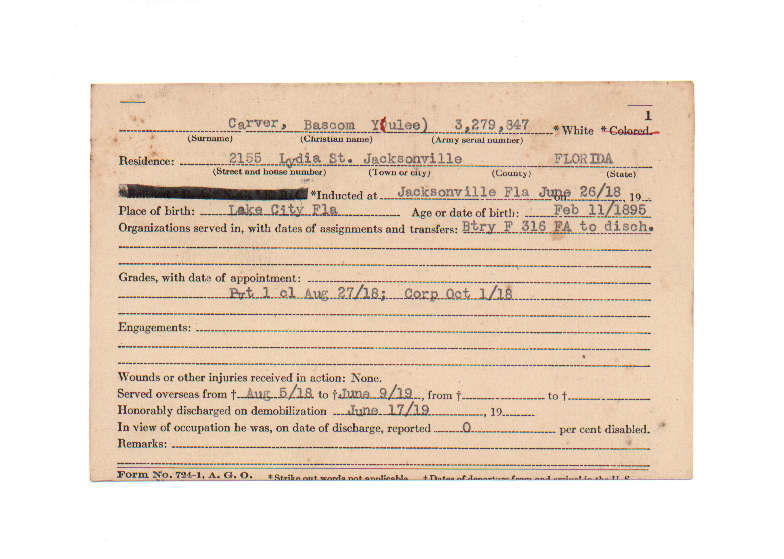 1
Carver, Bascom Y(ulee) 3,279,847 * White * Colored.
(Surname) (Christian name) (Army serial number)
Residence: 2155 Lydia St. Jacksonville FLORIDA
(Street and house number) (Town or city) (County) (State)
*Inducted at Jacksonville Fla on June 26/18 19
Place of birth: Lake City Fla Age or date of birth: Feb 11/1895
Organizations served in, with dates of assignments and transfers: Btry F 316 FA to disch.
Grades, with date of appointment:
Pvt 1 cl Aug 27/18; Corp Oct 1/18
Engagements:
Wounds or other injuries received in action: None.
Served overseas from † Aug 5/18 to † June 9/19, from † to †
Honorably discharged on demobilization June 17/19, 19
In view of occupation he was, on date of discharge, reported 0 per cent disabled.
Remarks:
Form No. 724-1, A. G. O. * Strike out words not applicable. † Dates of departure from and arrival in the U. S.